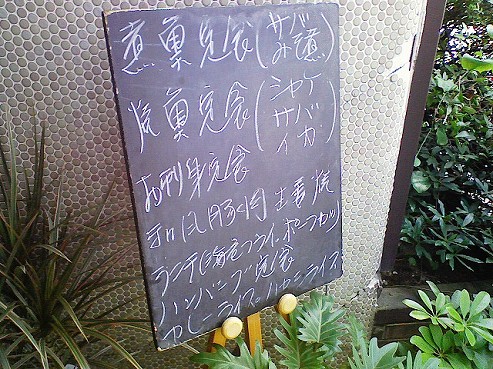 煮魚定食(サバみそ煮)
焼魚定食(シャケ サバ イカ)
お刺身定食
和風豚肉生姜焼
ランチ(海老フライ、ポークカツ)
ハンバーグ定食
カレーライス。ハヤシライス